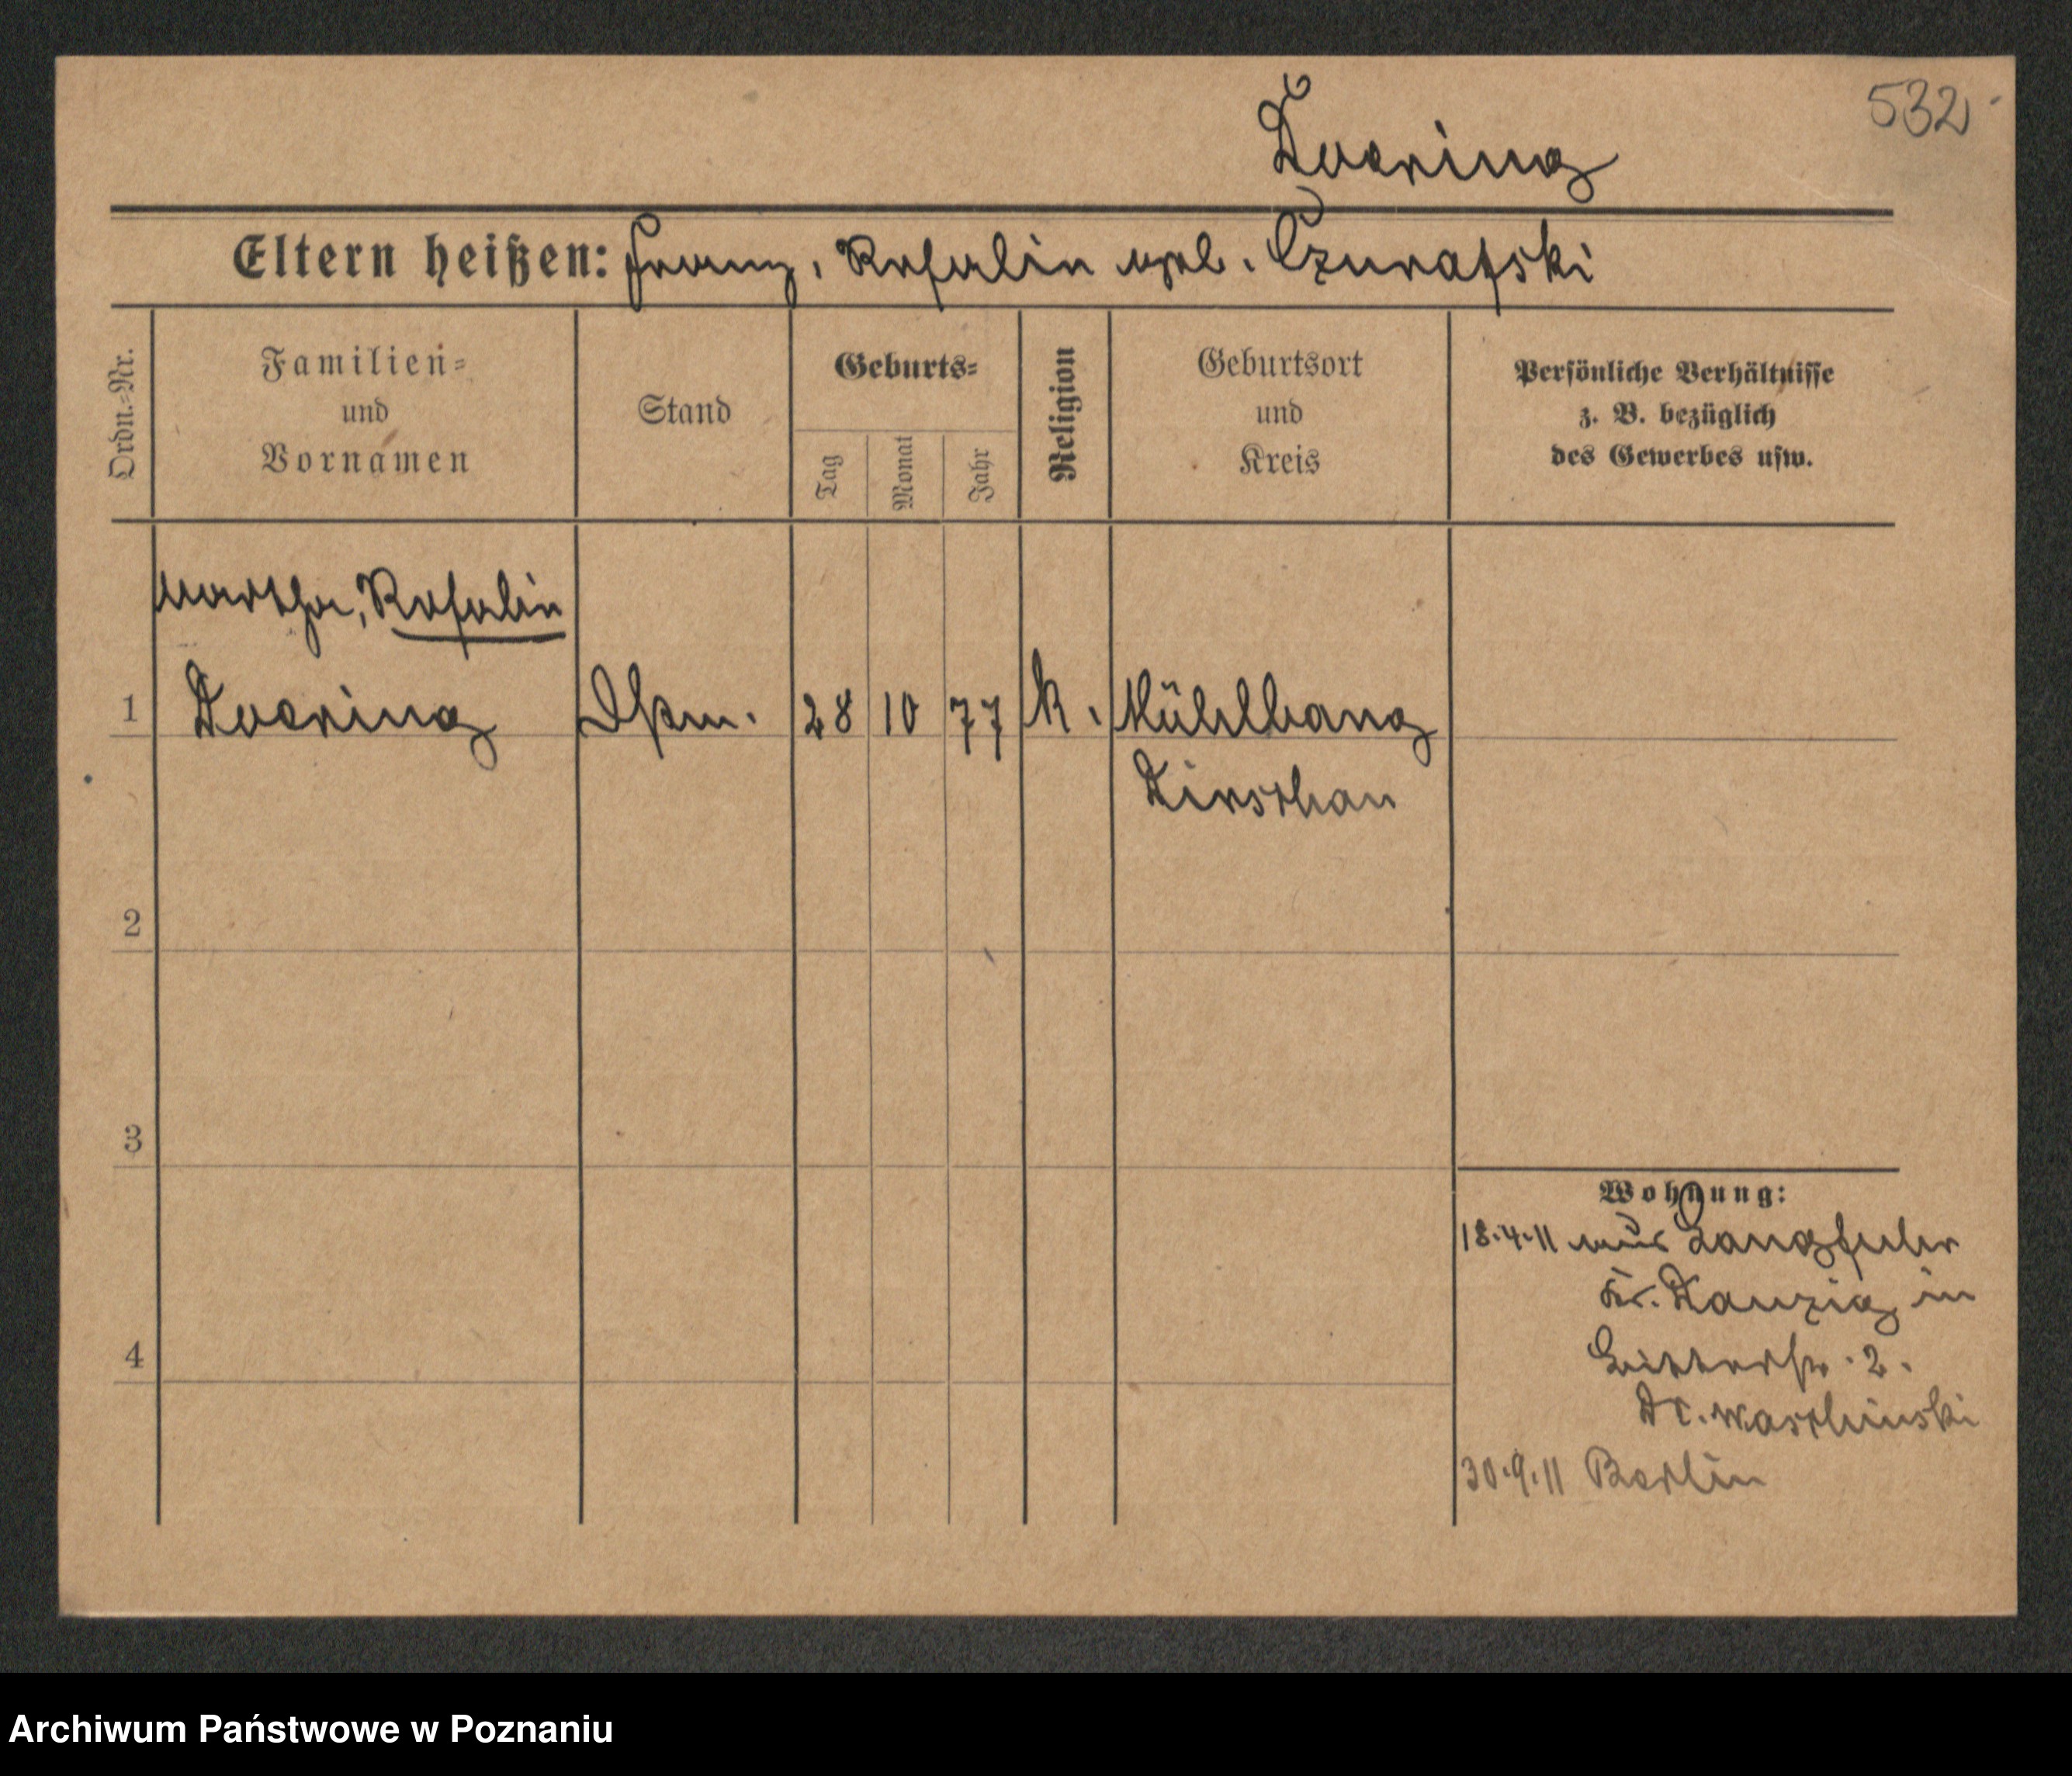 532
Doering
Eltern heißen: Franz, Rosalie geb. Czarafski
Ordn.-Nr.
Familien-
und
Vornamen
Stand
Geburts-
Tag
Monat
Jahr
Religion
Geburtsort
und
Kreis
Persönliche Verhältnisse
z. B. bezüglich
des Gewerbes usw.
Martha, Rosalie
1 Doering 28 10 77 k. Mühlbanz
Dirschau
2
3
4
Wohnung:
18.4.11 aus Langfuhr
Kr. Danzig in
2.
Dr. Waschinski
30.9.11 Berlin
Archiwum Państwowe w Poznaniu